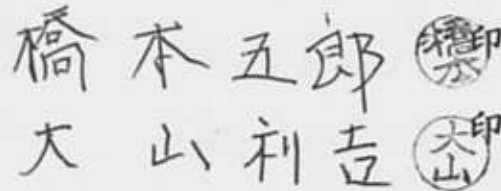 橋本五郎 橋本 印
大山利吉 大山 印